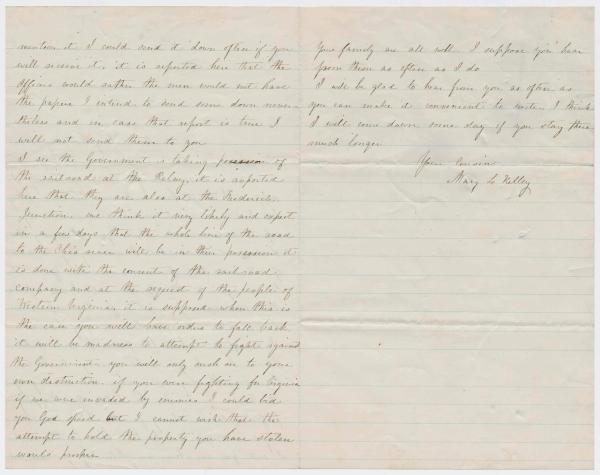 mention it I could send it down often if you
will receive it, it is reported here that the
Officers would rather the men would not have
the papers I intend to send some down never-
theless and in case that report is true I
will not send them to you
I see the Government is taking possession of
the railroad at the Relay, it is reported
here that they are also at the Frederick
Junction, we think it very likely and expect
in a few days that the whole line of the road
to the Ohio river will be in their possession it
is done with the consent of the rail road
company and at the request of the people of
Western Virginia, it is supposed when this is
the case you will have orders to fall back
it will be madness to attempt to fight against
the Government you will only rush on to your
own destruction. if you were fighting for Virginia
if we were invaded by enemies I could bid
you God speed but I cannot wish that the
attempt to hold the property you have stolen
would prosper
Your family are all well I suppose you hear
from them as often as I do
I will be glad to hear from you as often as
you can make it convenient to write. I think
I will come down some day if you stay there
much longer
Your Cousin
Mary L Kelley